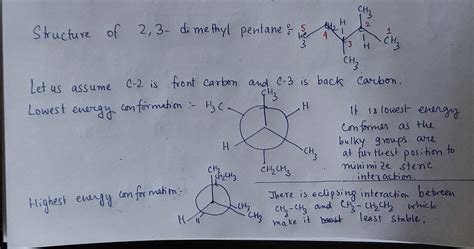 Structure of 2,3-dimethyl pentane :-
H₃C 5 4 CH₂ H 3 CH₃ H 2 CH₃ CH₃ 1
Let us assume C-2 is front carbon and C-3 is back carbon.
Lowest energy conformation :-
H₃C CH₃ H
H CH₃
CH₂CH₃
It is lowest energy
conformer as the
bulky groups are
at furthest position to
minimize steric
interaction.
Highest energy conformation :-
CH₃
CH₂CH₃
H H CH₃
CH₃
There is eclipsing interaction between
CH₃-CH₃ and CH₃-CH₂CH₃ which
make it least stable.